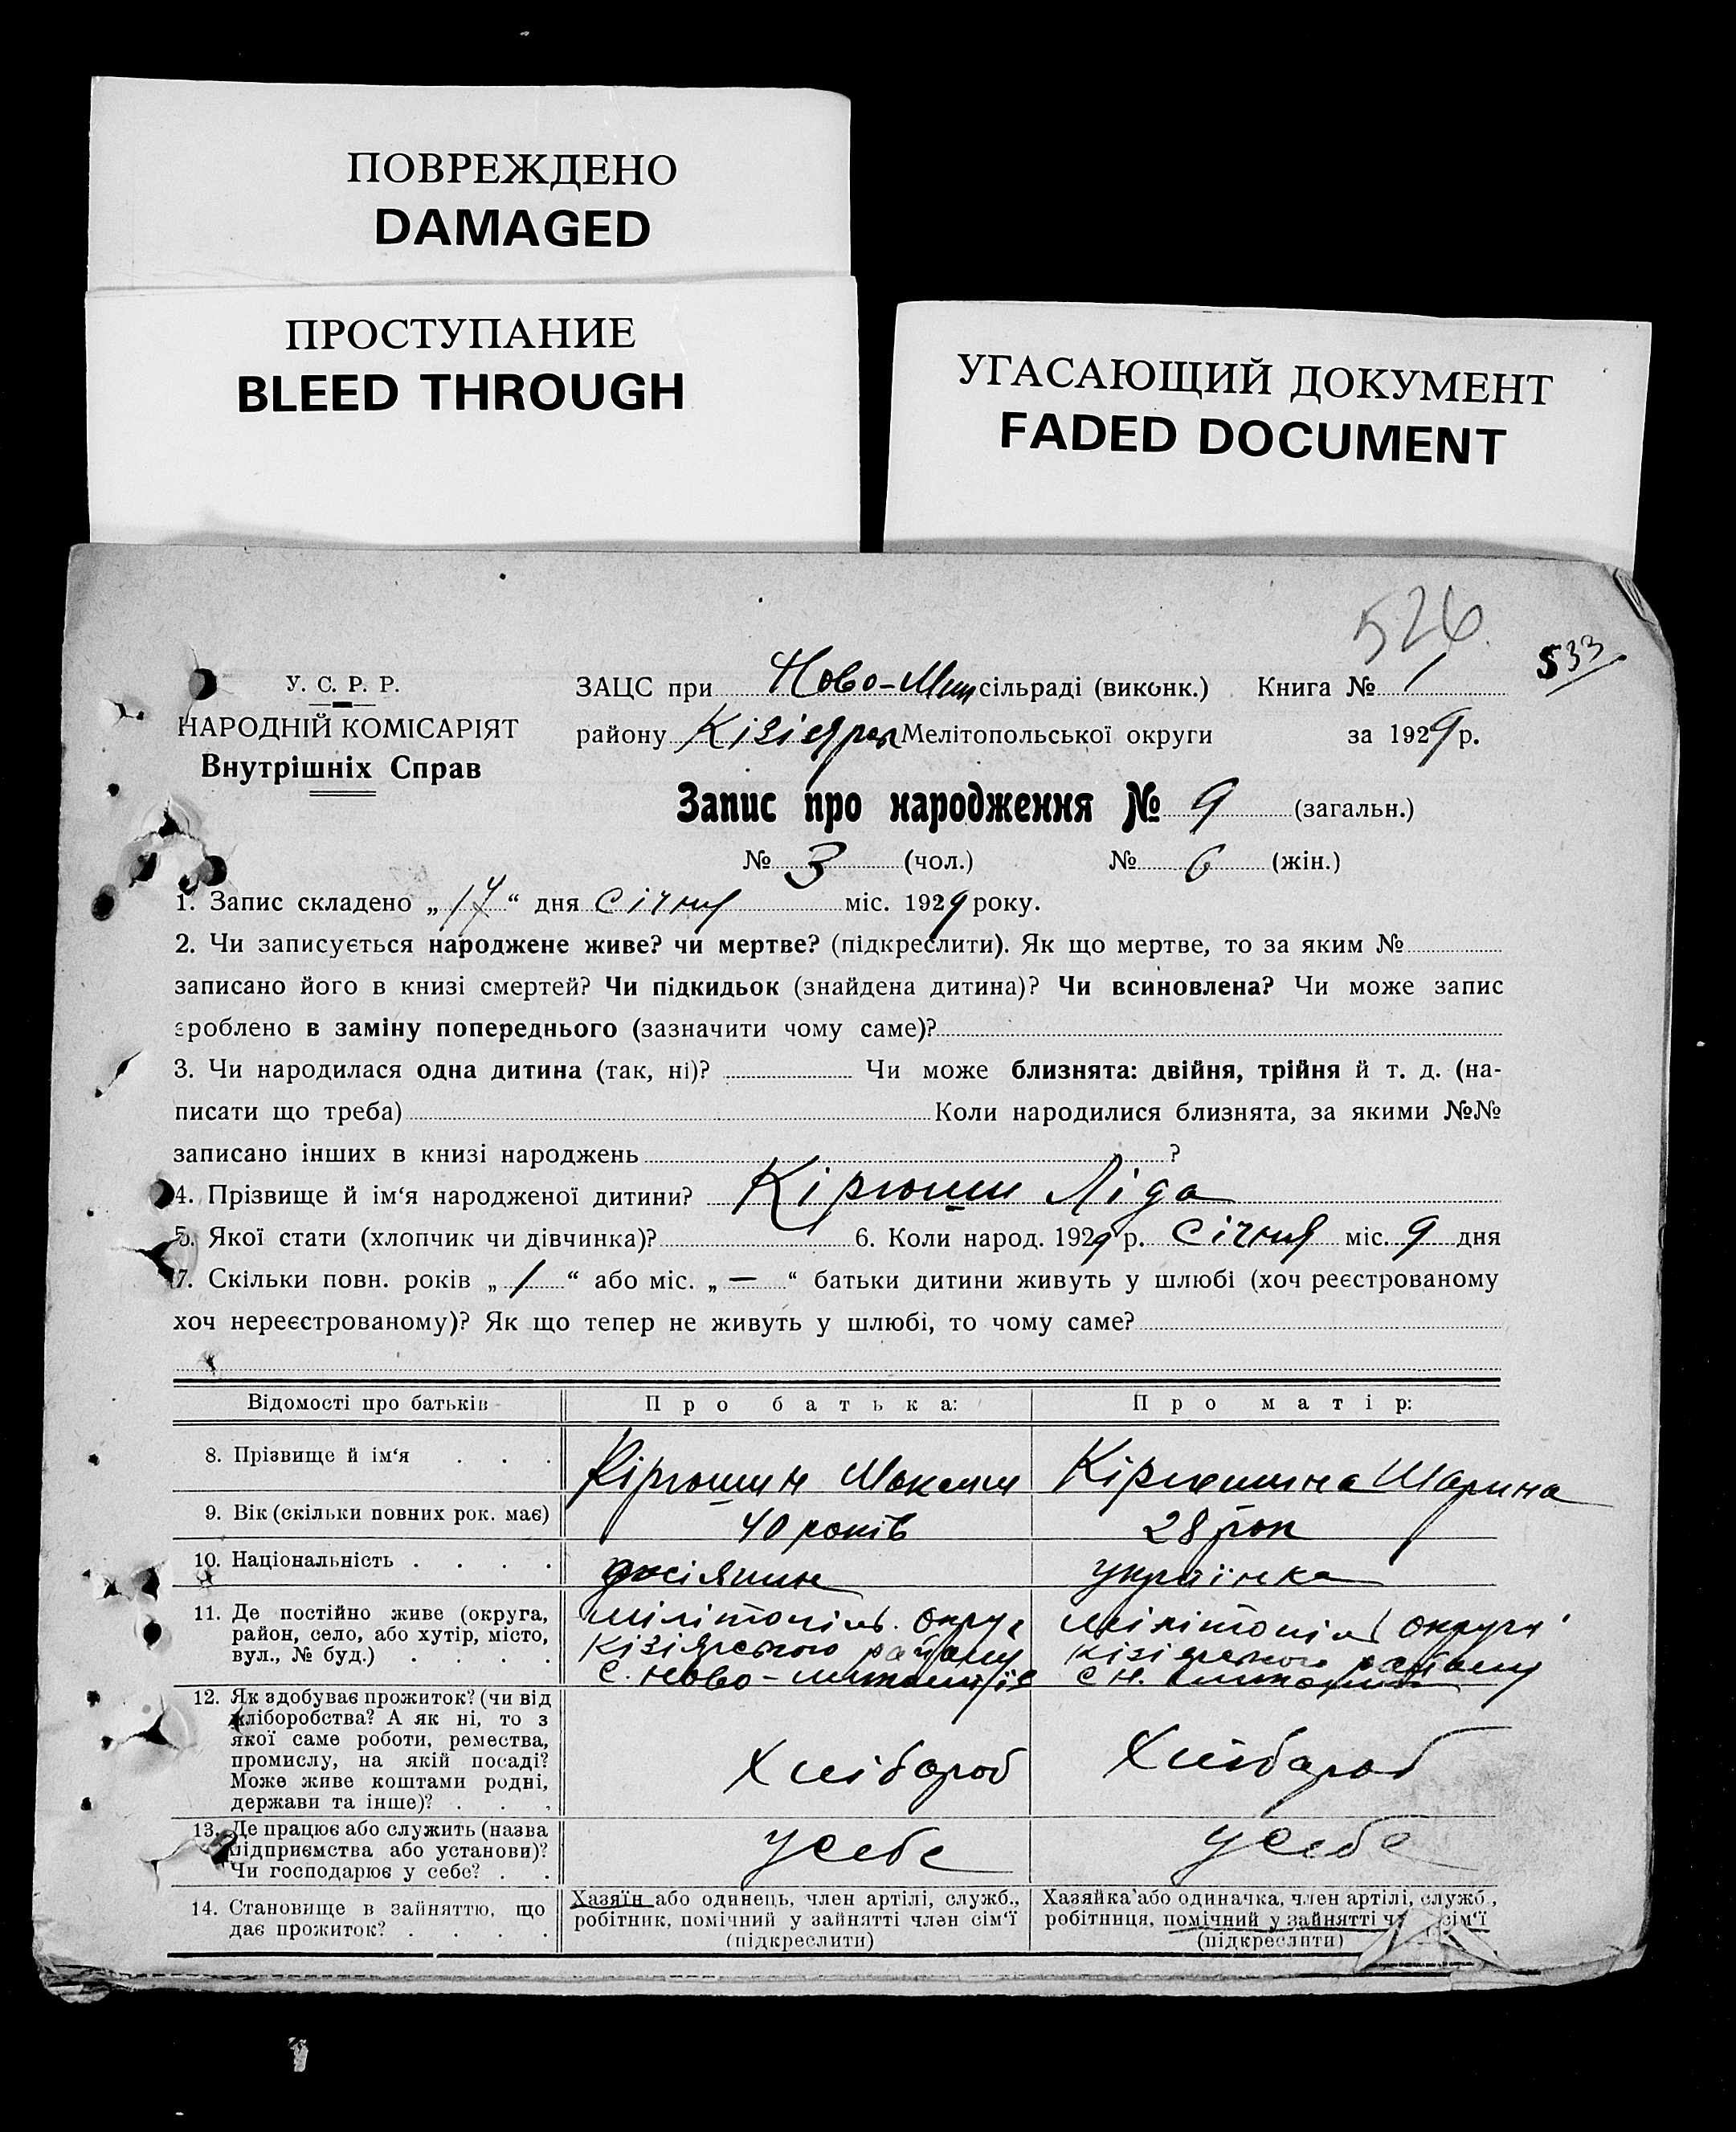 ПОВРЕЖДЕНО
DAMAGED
ПРОСТУПАНИЕ
BLEED THROUGH
УГАСАЮЩИЙ ДОКУМЕНТ
FADED DOCUMENT
526
533
У. С. Р. Р.
НАРОДНІЙ КОМІСАРІЯТ
Внутрішніх Справ
ЗАЦС при Ново-Мик сільраді (виконк.) Книга № 1
району Кізіяр Мелітопольської округи за 1929 р.
Запис про народження № 9 (загальн.)
№ 3 (чол.) № 6 (жін.)
1. Запис складено „17“ дня січня міс. 1929 року.
2. Чи записується народжене живе? чи мертве? (підкреслити). Як що мертве, то за яким №
записано його в книзі смертей? Чи підкидьок (знайдена дитина)? Чи всиновлена? Чи може запис
зроблено в заміну попереднього (зазначити чому саме)?
3. Чи народилася одна дитина (так, ні)? Чи може близнята: двійня, трійня й т. д. (на-
писати що треба) Коли народилися близнята, за якими №№
записано інших в книзі народжень ?
4. Прізвище й ім‘я народженої дитини? Кірюшин Ліда
5. Якої стати (хлопчик чи дівчинка)? 6. Коли народ. 1929 р. січня міс. 9 дня
7. Скільки повн. років „1“ або міс. „—“ батьки дитини живуть у шлюбі (хоч реєстрованому
хоч нереєстрованому)? Як що тепер не живуть у шлюбі, то чому саме?
Відомості про батьків Про батька: Про матір:
8. Прізвище й ім‘я . . . Кірюшин Максим Кірюшина Марина
9. Вік (скільки повних рок. має) 40 років 28 рок
10. Національність . . . . росіянин українка
11. Де постійно живе (округа,
район, село, або хутір, місто,
вул., № буд.) . . . .
мілітопіль. округ
Кізіярського району
с. Ново-
мілітопіль округи
Кізіярського району
с Н.
12. Як здобуває прожиток? (чи від
хліборобства? А як ні, то з
якої саме роботи, ремества,
промислу, на якій посаді?
Може живе коштами родні,
держави та інше)? . . .
Хлібороб Хлібороб
13. Де працює або служить (назва
підприємства або установи)?
Чи господарює у себе? . .
У себе У себе
14. Становище в зайняттю, що
дає прожиток? . . . .
Хазяїн або одинець, член артілі, служб.,
робітник, помічний у зайнятті член сім‘ї
(підкреслити)
Хазяйка або одиначка, член артілі, служб.,
робітниця, помічний у зайнятті сім‘ї
(підкреслити)